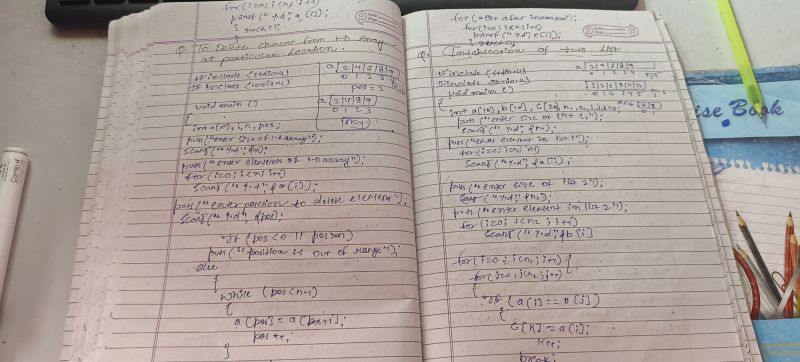 for(i=0; i<n; i++)
printf("%d", a[i]);
} getch();
Q. To Delete element from 1-D Array
at particular location.
# include <stdio.h>
# include <conio.h>
a 2 4 6 8 9
0 1 2 3 4
pos = 2
void main ()
{
a 2 4 8 9
0 1 2 3
(n-1)
int a[10], i, n, pos;
puts("enter size of 1-D array");
scanf("%d", &n);
puts("enter elements of 1-D array");
for(i=0; i<n; i++)
scanf("%d", &a[i]);
puts("enter position to delete element");
scanf("%d", &pos);
if (pos<0 || pos>=n)
puts("position is out of range");
else
{
while (pos<n-1)
{
a[pos] = a[pos+1];
pos++;
}
for(i=0; i<k; i++)
printf("%d", c[i]);
} getch();
Q. Intersection of two list
# include <stdio.h>
# include <conio.h>
void main ()
{
a 2 4 6 8 9
0 1 2 3 4
0 1 2 3 4 5
int a[10], b[10], c[20], n1, n2, i, j, k=0;
puts("enter size of list 1");
scanf("%d", &n1);
puts("enter element in list 1");
for(i=0; i<n1; i++)
scanf("%d", &a[i]);
puts("enter size of list 2");
scanf("%d", &n2);
puts("enter element in list 2");
for(i=0; i<n2; i++)
scanf("%d", &b[i]
for(i=0; i<n1; i++) {
for(j=0; j<n2; j++)
{
if (a[i] == b[j])
{
c[k] = a[i];
k++;
break;
ise Book